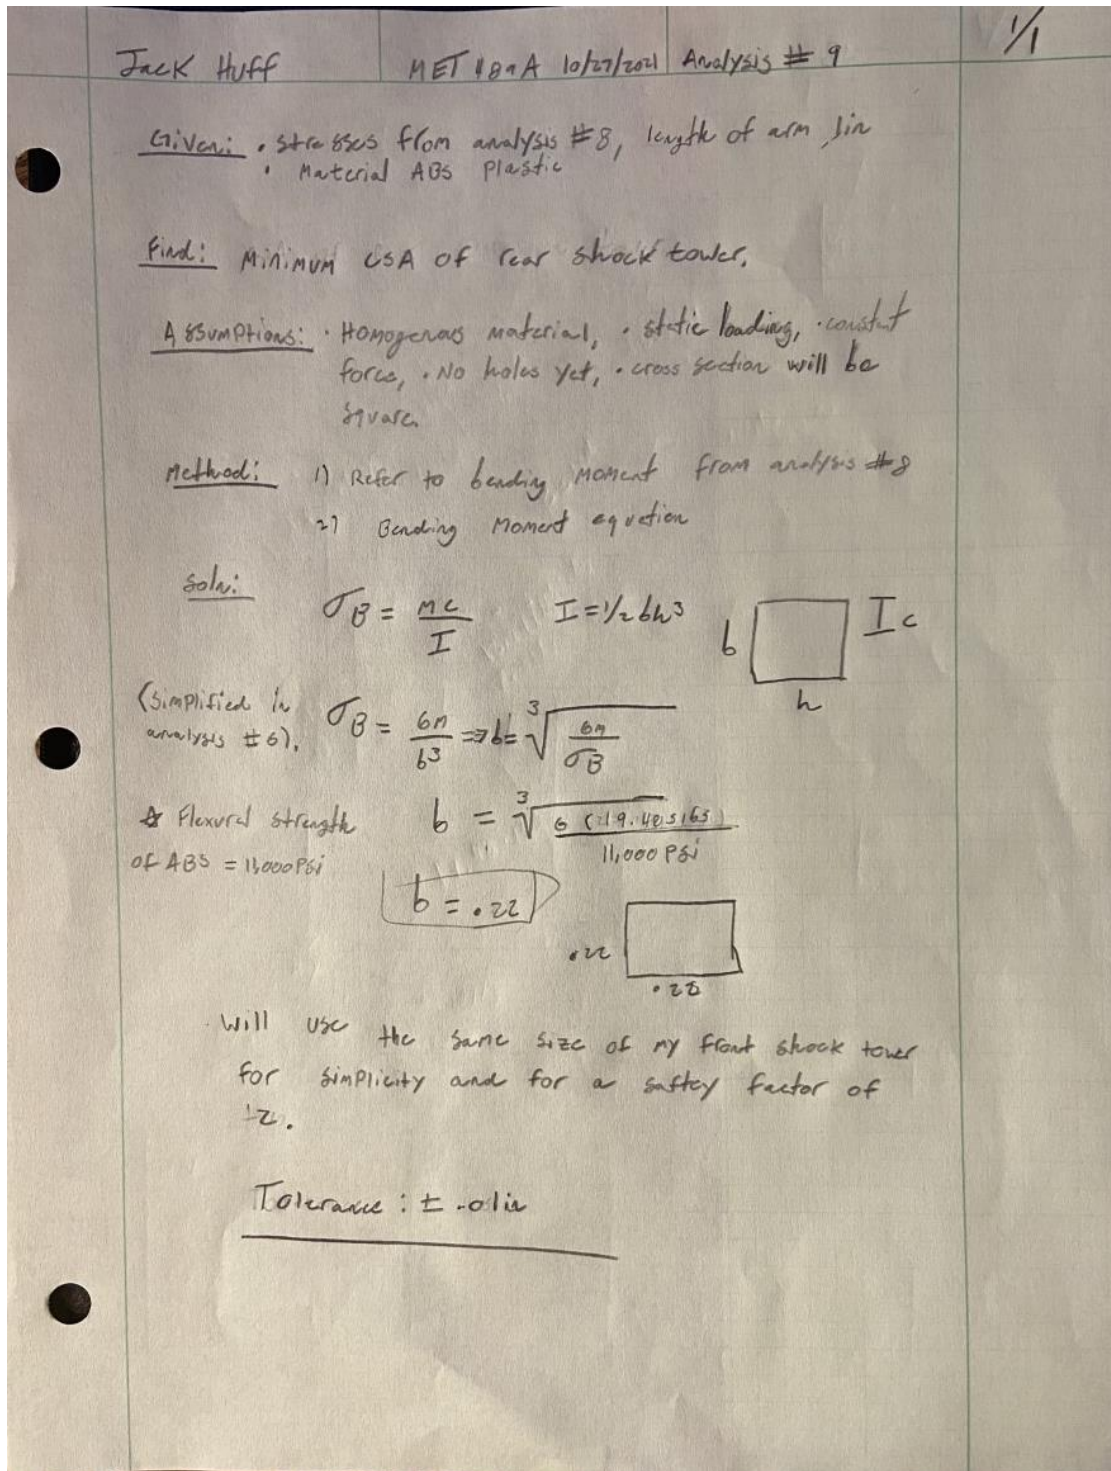 Jack Huff MET 489A 10/27/2021 Analysis # 9 1/1
Given: • stresses from analysis #8, length of arm
• Material ABS Plastic
Find: Minimum CSA of rear shock tower.
Assumptions: • Homogenous material, • static loading, • constant
force, • No holes yet, • cross section will be
square.
Method: 1) Refer to bending moment from analysis #8
2) Bending Moment equation
Soln:
σB = MC/I I = 1/2 bh³ b h I c
(Simplified in
analysis #6).
σB = 6M/b³ => b = ³√(6M/σB)
☆ Flexural strength
of ABS = 11,000 PSi
b = ³√(6 ( )/11,000 PSi)
b = .22
.22
Will use the same size of my front shock tower
for simplicity and for a saftey factor of
Tolerance: ± .01in